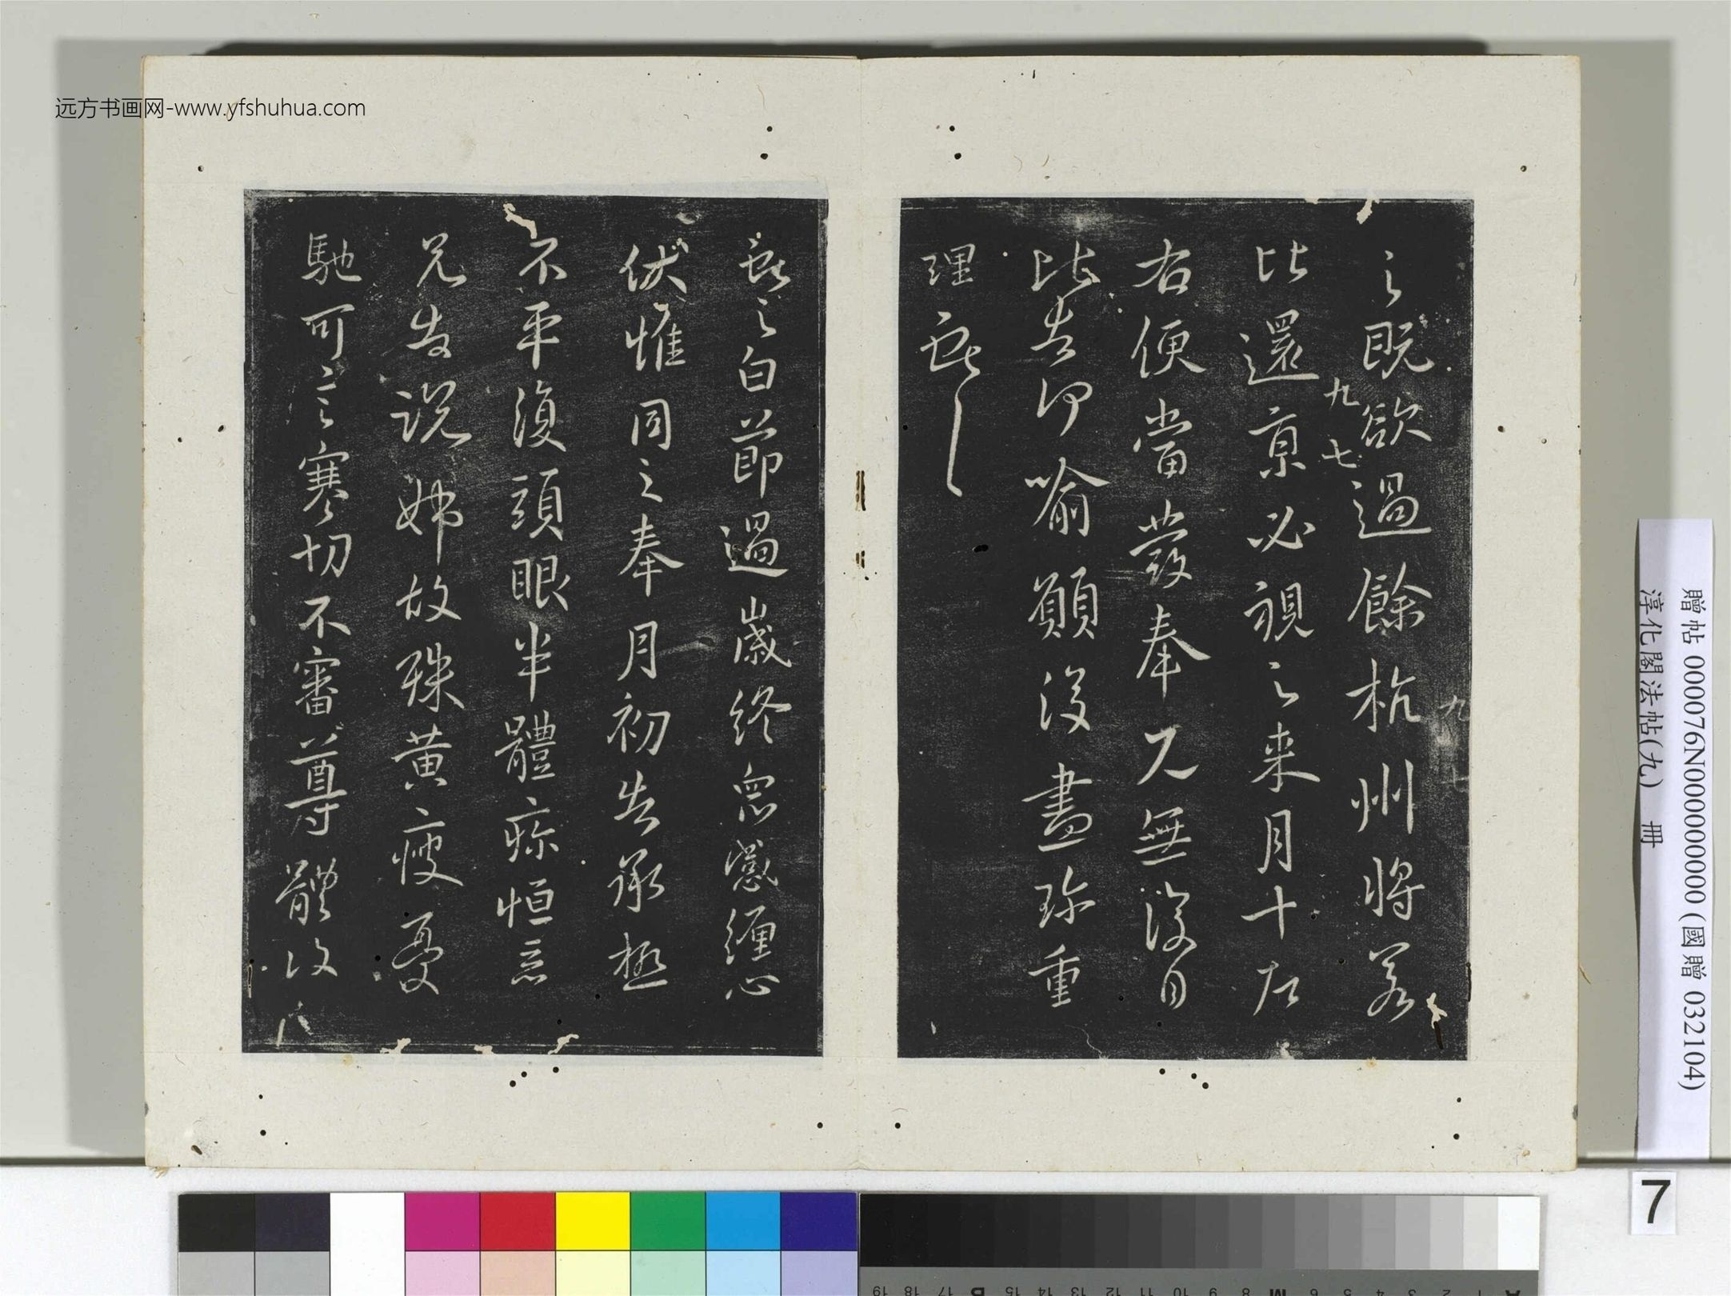 之既欲過餘杭州將若
比還京必視之來月十左
右便當發奉見無復日
比告何喻願復盡珍重
理獻之
獻之白節過歲終眾感纏心
伏惟同之奉月初告承極
不平復頭眼半體疼恒惡
兄告說姊故殊黃瘦憂
馳可言寒切不審尊體復
九 七
九 七
远方书画网-www.yfshuhua.com
贈帖 000076N000000000 (國贈 032104)
淳化閣法帖(九) 冊
7